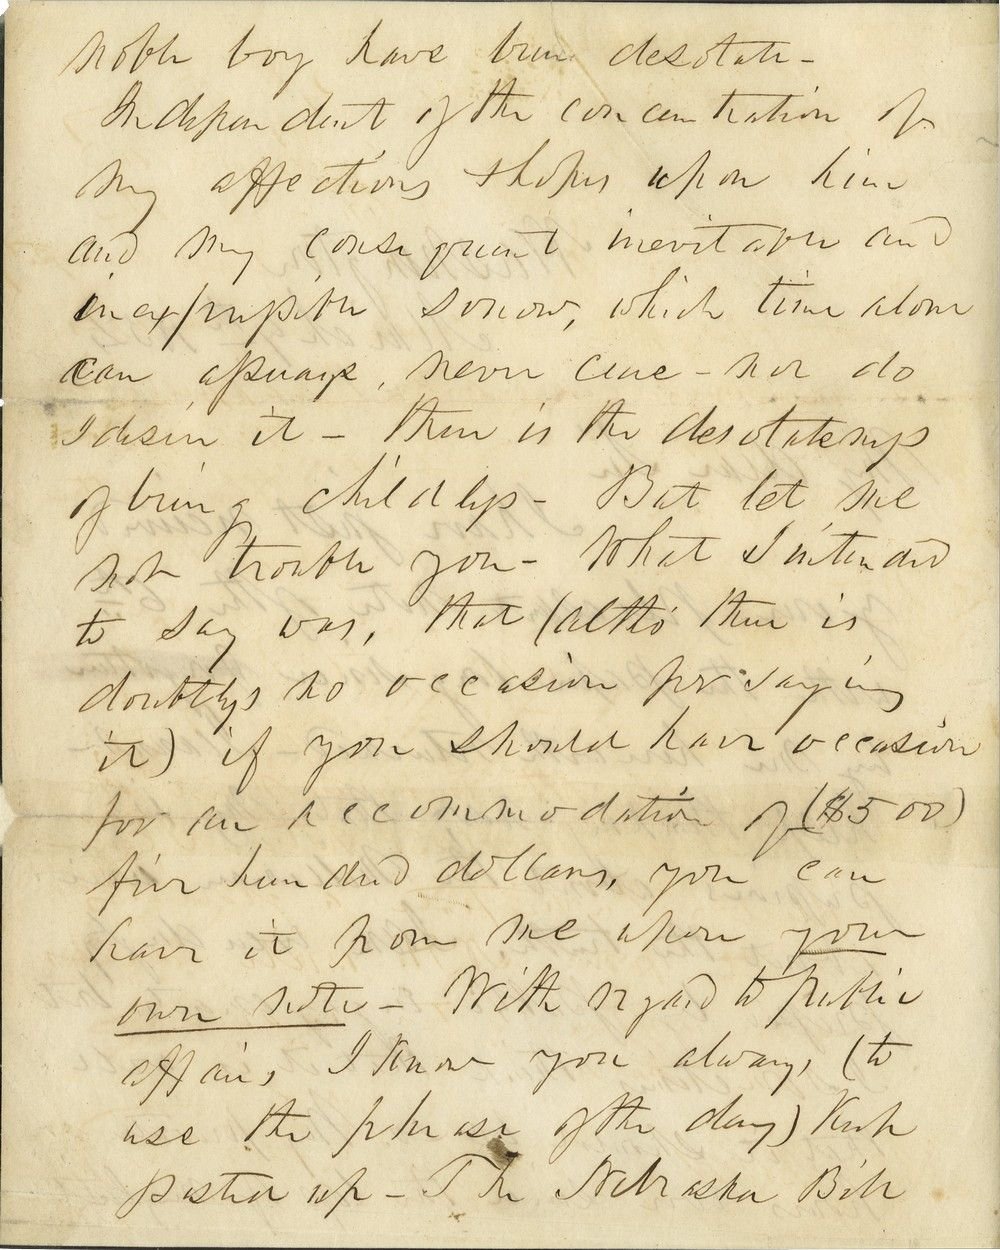 noble boy have been desolate -
Independent of the concentration of
my affections & hopes upon him
and my consequent inevitable and
inexpressible sorrow, which time alone
can assuage, never cure - nor do
I desire it - there is the desolateness
of being childless - But let me
not trouble you - What I intended
to say was, that (altho there is
doubtless no occasion for saying
it) if you should have occasion
for an accommodation of ($500)
five hundred dollars, you can
have it from me upon your
own note - With regard to public
affairs, I know you always (to
use the phrase of the day) keep
posted up - The Nebraska Bill